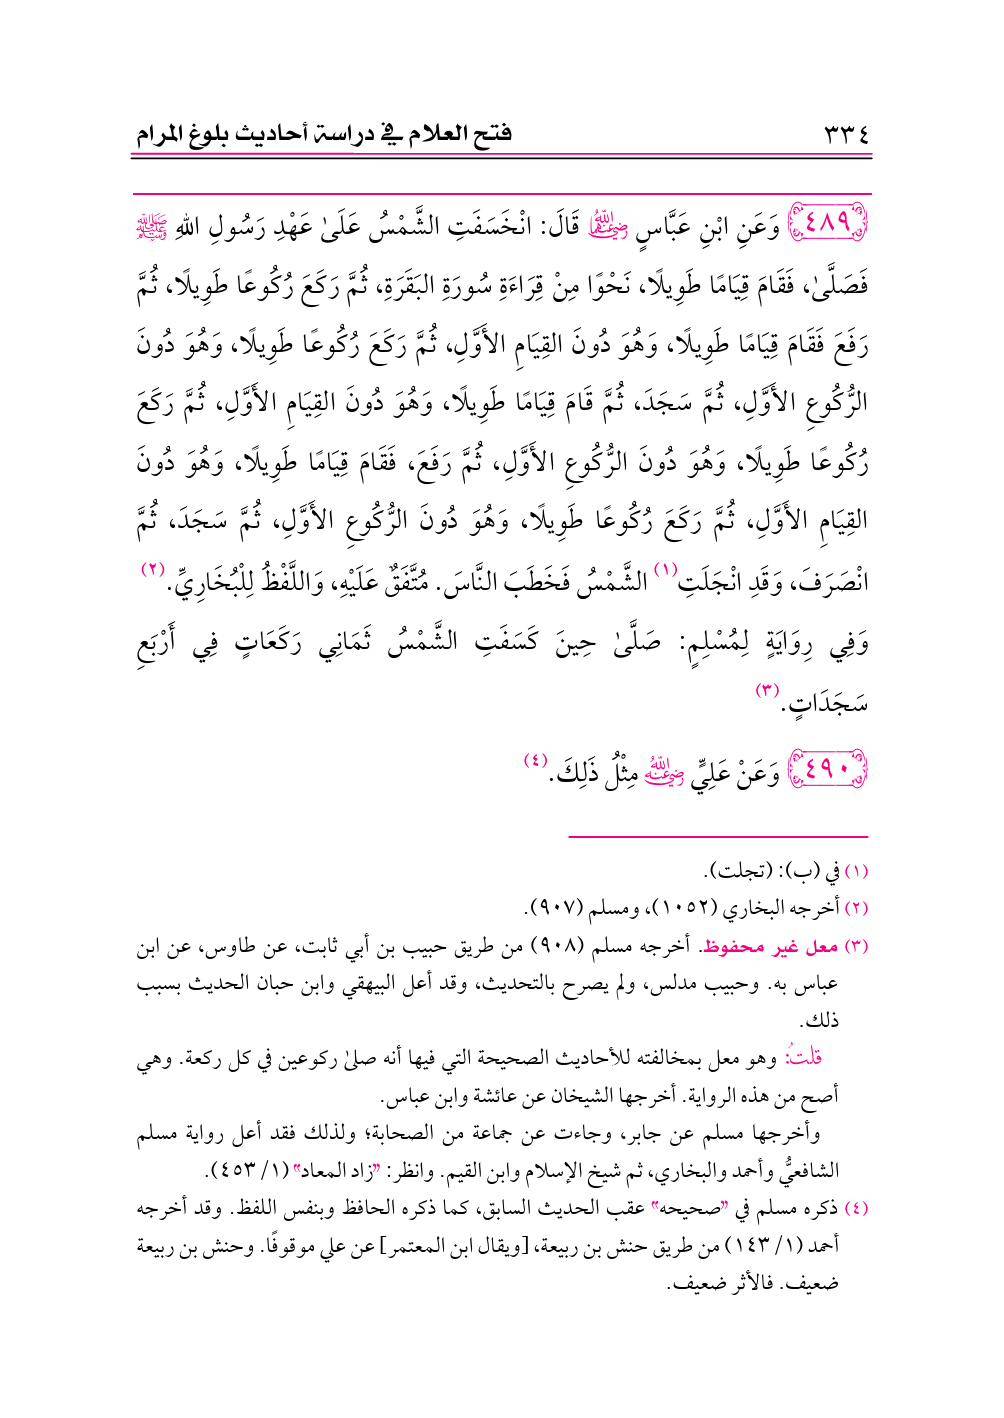 ٣٣٤ فتح العلام في دراسة أحاديث بلوغ المرام
٤٨٩ وَعَنِ ابْنِ عَبَّاسٍ رضي الله عنهما قَالَ: انْخَسَفَتِ الشَّمْسُ عَلَىٰ عَهْدِ رَسُولِ اللهِ ﷺ
فَصَلَّىٰ، فَقَامَ قِيَامًا طَوِيلًا، نَحْوًا مِنْ قِرَاءَةِ سُورَةِ البَقَرَةِ، ثُمَّ رَكَعَ رُكُوعًا طَوِيلًا، ثُمَّ
رَفَعَ فَقَامَ قِيَامًا طَوِيلًا، وَهُوَ دُونَ القِيَامِ الأَوَّلِ، ثُمَّ رَكَعَ رُكُوعًا طَوِيلًا، وَهُوَ دُونَ
الرُّكُوعِ الأَوَّلِ، ثُمَّ سَجَدَ، ثُمَّ قَامَ قِيَامًا طَوِيلًا، وَهُوَ دُونَ القِيَامِ الأَوَّلِ، ثُمَّ رَكَعَ
رُكُوعًا طَوِيلًا، وَهُوَ دُونَ الرُّكُوعِ الأَوَّلِ، ثُمَّ رَفَعَ، فَقَامَ قِيَامًا طَوِيلًا، وَهُوَ دُونَ
القِيَامِ الأَوَّلِ، ثُمَّ رَكَعَ رُكُوعًا طَوِيلًا، وَهُوَ دُونَ الرُّكُوعِ الأَوَّلِ، ثُمَّ سَجَدَ، ثُمَّ
انْصَرَفَ، وَقَدِ انْجَلَتِ(١) الشَّمْسُ فَخَطَبَ النَّاسَ. مُتَّفَقٌ عَلَيْهِ، وَاللَّفْظُ لِلْبُخَارِيِّ.(٢)
وَفِي رِوَايَةٍ لِمُسْلِمٍ: صَلَّىٰ حِينَ كَسَفَتِ الشَّمْسُ ثَمَانِي رَكَعَاتٍ فِي أَرْبَعِ
سَجَدَاتٍ.(٣)
٤٩٠ وَعَنْ عَلِيٍّ رضي الله عنه مِثْلُ ذَلِكَ.(٤)
(١) في (ب): (تجلت).
(٢) أخرجه البخاري (١٠٥٢)، ومسلم (٩٠٧).
(٣) معل غير محفوظ. أخرجه مسلم (٩٠٨) من طريق حبيب بن أبي ثابت، عن طاوس، عن ابن
عباس به. وحبيب مدلس، ولم يصرح بالتحديث، وقد أعل البيهقي وابن حبان الحديث بسبب
ذلك.
قلتُ: وهو معل بمخالفته للأحاديث الصحيحة التي فيها أنه صلىٰ ركوعين في كل ركعة. وهي
أصح من هذه الرواية. أخرجها الشيخان عن عائشة وابن عباس.
وأخرجها مسلم عن جابر، وجاءت عن جماعة من الصحابة؛ ولذلك فقد أعل رواية مسلم
الشافعيُّ وأحمد والبخاري، ثم شيخ الإسلام وابن القيم. وانظر: "زاد المعاد" (١/ ٤٥٣).
(٤) ذكره مسلم في "صحيحه" عقب الحديث السابق، كما ذكره الحافظ وبنفس اللفظ. وقد أخرجه
أحمد (١/ ١٤٣) من طريق حنش بن ربيعة، [ويقال ابن المعتمر] عن علي موقوفًا. وحنش بن ربيعة
ضعيف. فالأثر ضعيف.